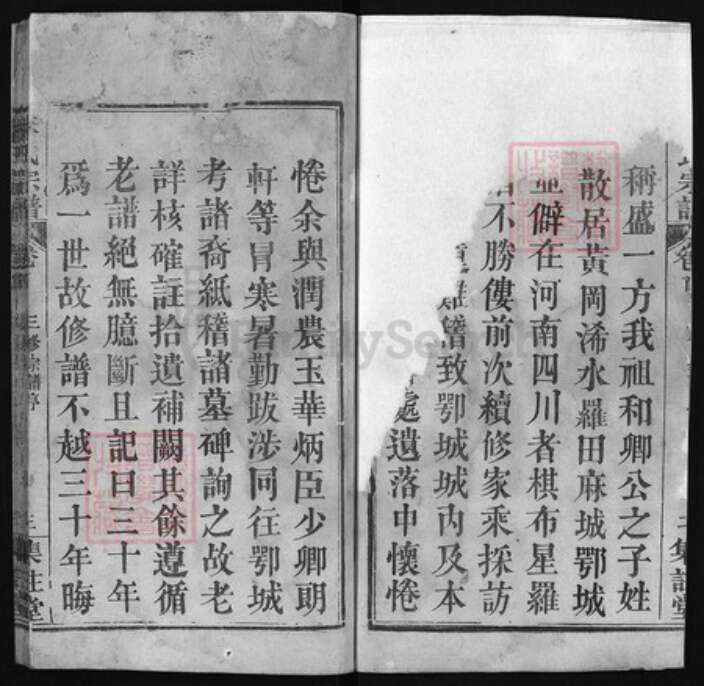 稱盛一方我祖和卿公之子姓
散居黃岡浠水羅田麻城鄂城
僻在河南四川者棋布星羅
不勝僂前次續修家乘採訪
難嶜致鄂城城內及本
處遺落中懷惓
惓余與潤農玉華炳臣少卿朗
軒等冒寒暑勤跋涉同往鄂城
考諸裔紙稽諸墓碑詢之故老
詳核確註拾遺補闕其餘遵循
老譜絕無臆斷且記曰三十年
為一世故修譜不越三十年晦
氏宗譜 卷首 三修宗譜序 三 集註堂
FamilySearch